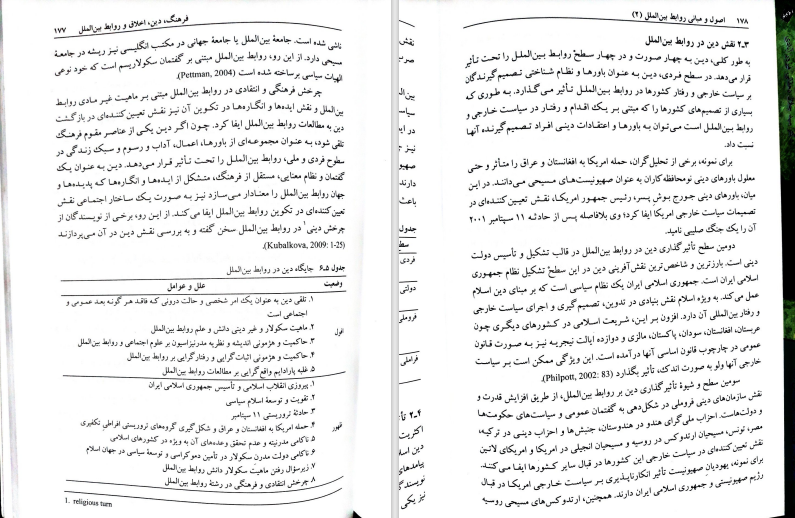 فرهنگ، دین، اخلاق و روابط بین‌الملل ۱۷۷
ناشی شده است. جامعهٔ بین‌الملل یا جامعهٔ جهانی در مکتب انگلیسی نیز ریشه در جامعهٔ
مسیحی دارد. از این رو، روابط بین‌الملل مبتنی بر گفتمان سکولاریسم است که خود نوعی
الهیات سیاسی برساخته شده است (Pettman, 2004).
چرخش فرهنگی و انتقادی در روابط بین‌الملل مبتنی بر ماهیت غیر مادی روابط
بین‌الملل و نقش ایده‌ها و انگاره‌ها در تکوین آن نیز نقش تعیین کننده‌ای در بازگشت
دین به مطالعات روابط بین‌الملل ایفا کرد. چون اگر دین یکی از عناصر مقوم فرهنگ
تلقی شود، به عنوان مجموعه‌ای از باورها، اعمال، آداب و رسوم و سبک زندگی در
سطوح فردی و ملی، روابط بین‌الملل را تحت تأثیر قرار می‌دهد. دین به عنوان یک
گفتمان و نظام معنایی، مستقل از فرهنگ، متشکل از ایده‌ها و انگاره‌ها که پدیده‌ها و
جهان روابط بین‌الملل را معنادار می‌سازد نیز به صورت یک ساختار اجتماعی نقش
تعیین کننده‌ای در تکوین روابط بین‌الملل ایفا می‌کند. از این رو، برخی از نویسندگان از
چرخش دینی۱ در روابط بین‌الملل سخن گفته و به بررسی نقش دین در آن می‌پردازند
(Kubalkova, 2009: 1-25).
جدول ۶.۵ جایگاه دین در روابط بین‌الملل
وضعیت علل و عوامل
۱. تلقی دین به عنوان یک امر شخصی و حالت درونی که فاقد هر گونه بعد عمومی و
اجتماعی است
۲. ماهیت سکولار و غیر دینی دانش و علم روابط بین‌الملل
افول ۳. حاکمیت و هژمونی اندیشه و نظریه مدرنیزاسیون بر علوم اجتماعی و روابط بین‌الملل
۴. حاکمیت و هژمونی اثبات‌گرایی و رفتارگرایی بر روابط بین‌الملل
۵. غلبه پارادایم واقع‌گرایی بر مطالعات روابط بین‌الملل
۱. پیروزی انقلاب اسلامی و تأسیس جمهوری اسلامی ایران
۲. تقویت و توسعهٔ اسلام سیاسی
۳. حادثهٔ تروریستی ۱۱ سپتامبر
۴. حمله امریکا به افغانستان و عراق و شکل‌گیری گروه‌های تروریستی افراطی تکفیری
ظهور ۵. ناکامی مدرنیته و عدم تحقق وعده‌های آن به ویژه در کشورهای اسلامی
۶. ناکامی دولت مدرن سکولار در تأمین دموکراسی و توسعهٔ سیاسی در جهان اسلام
۷. زیرسؤال رفتن ماهیت سکولار دانش روابط بین‌الملل
۸. چرخش انتقادی و فرهنگی در رشتهٔ روابط بین‌الملل
1. religious turn
۱۷۸ اصول و مبانی روابط بین‌الملل (۲)
۲.۳ نقش دین در روابط بین‌الملل
به طور کلی، دین به چهار صورت و در چهار سطح روابط بین‌الملل را تحت تأثیر
قرار می‌دهد. در سطح فردی، دین به عنوان باورها و نظام شناختی تصمیم‌گیرندگان
بر سیاست خارجی و رفتار کشورها در روابط بین‌الملل تأثیر می‌گذارد. به طوری که
بسیاری از تصمیم‌های کشورها را که مبتنی بر یک اقدام و رفتار در سیاست خارجی و
روابط بین‌الملل است می‌توان به باورها و اعتقادات دینی افراد تصمیم‌گیرنده آنها
نسبت داد.
برای نمونه، برخی از تحلیل‌گران، حمله امریکا به افغانستان و عراق را متأثر و حتی
معلول باورهای دینی نومحافظه‌کاران به عنوان صهیونیست‌های مسیحی می‌دانند. در این
میان، باورهای دینی جورج بوش پسر، رئیس جمهور امریکا، نقش تعیین کننده‌ای در
تصمیمات سیاست خارجی امریکا ایفا کرد؛ وی بلافاصله پس از حادثه ۱۱ سپتامبر ۲۰۰۱
آن را یک جنگ صلیبی نامید.
دومین سطح تأثیرگذاری دین در روابط بین‌الملل در قالب تشکیل و تأسیس دولت
دینی است. بارزترین و شاخص‌ترین نقش‌آفرینی دین در این سطح تشکیل نظام جمهوری
اسلامی ایران است. جمهوری اسلامی ایران یک نظام سیاسی است که بر مبنای دین اسلام
عمل می‌کند. به ویژه اسلام نقش بنیادی در تدوین، تصمیم‌گیری و اجرای سیاست خارجی
و رفتار بین‌المللی آن دارد. افزون بر این، شریعت اسلامی در کشورهای دیگری چون
عربستان، افغانستان، سودان، پاکستان، مالزی و دوازده ایالت نیجریه نیز به صورت قانون
عمومی در چارچوب قانون اساسی آنها درآمده است. این ویژگی ممکن است بر سیاست
خارجی آنها ولو به صورت اندک، تأثیر بگذارد (Philpott, 2002: 83).
سومین سطح و شیوهٔ تأثیرگذاری دین بر روابط بین‌الملل، از طریق افزایش قدرت و
نقش سازمان‌های دینی فروملی در شکل‌دهی به گفتمان عمومی و سیاست‌های حکومت‌ها
و دولت‌هاست. احزاب ملی‌گرای هندو در هندوستان، جنبش‌ها و احزاب دینی در ترکیه،
مصر، تونس، مسیحیان ارتدوکس در روسیه و مسیحیان انجیلی در امریکا و امریکای لاتین
نقش تعیین کننده‌ای در سیاست خارجی این کشورها در قبال سایر کشورها ایفا می‌کنند.
برای نمونه، یهودیان صهیونیست تأثیر انکارناپذیری بر سیاست خارجی امریکا در قبال
رژیم صهیونیستی و جمهوری اسلامی ایران دارند. همچنین، ارتدوکس‌های مسیحی روسیه